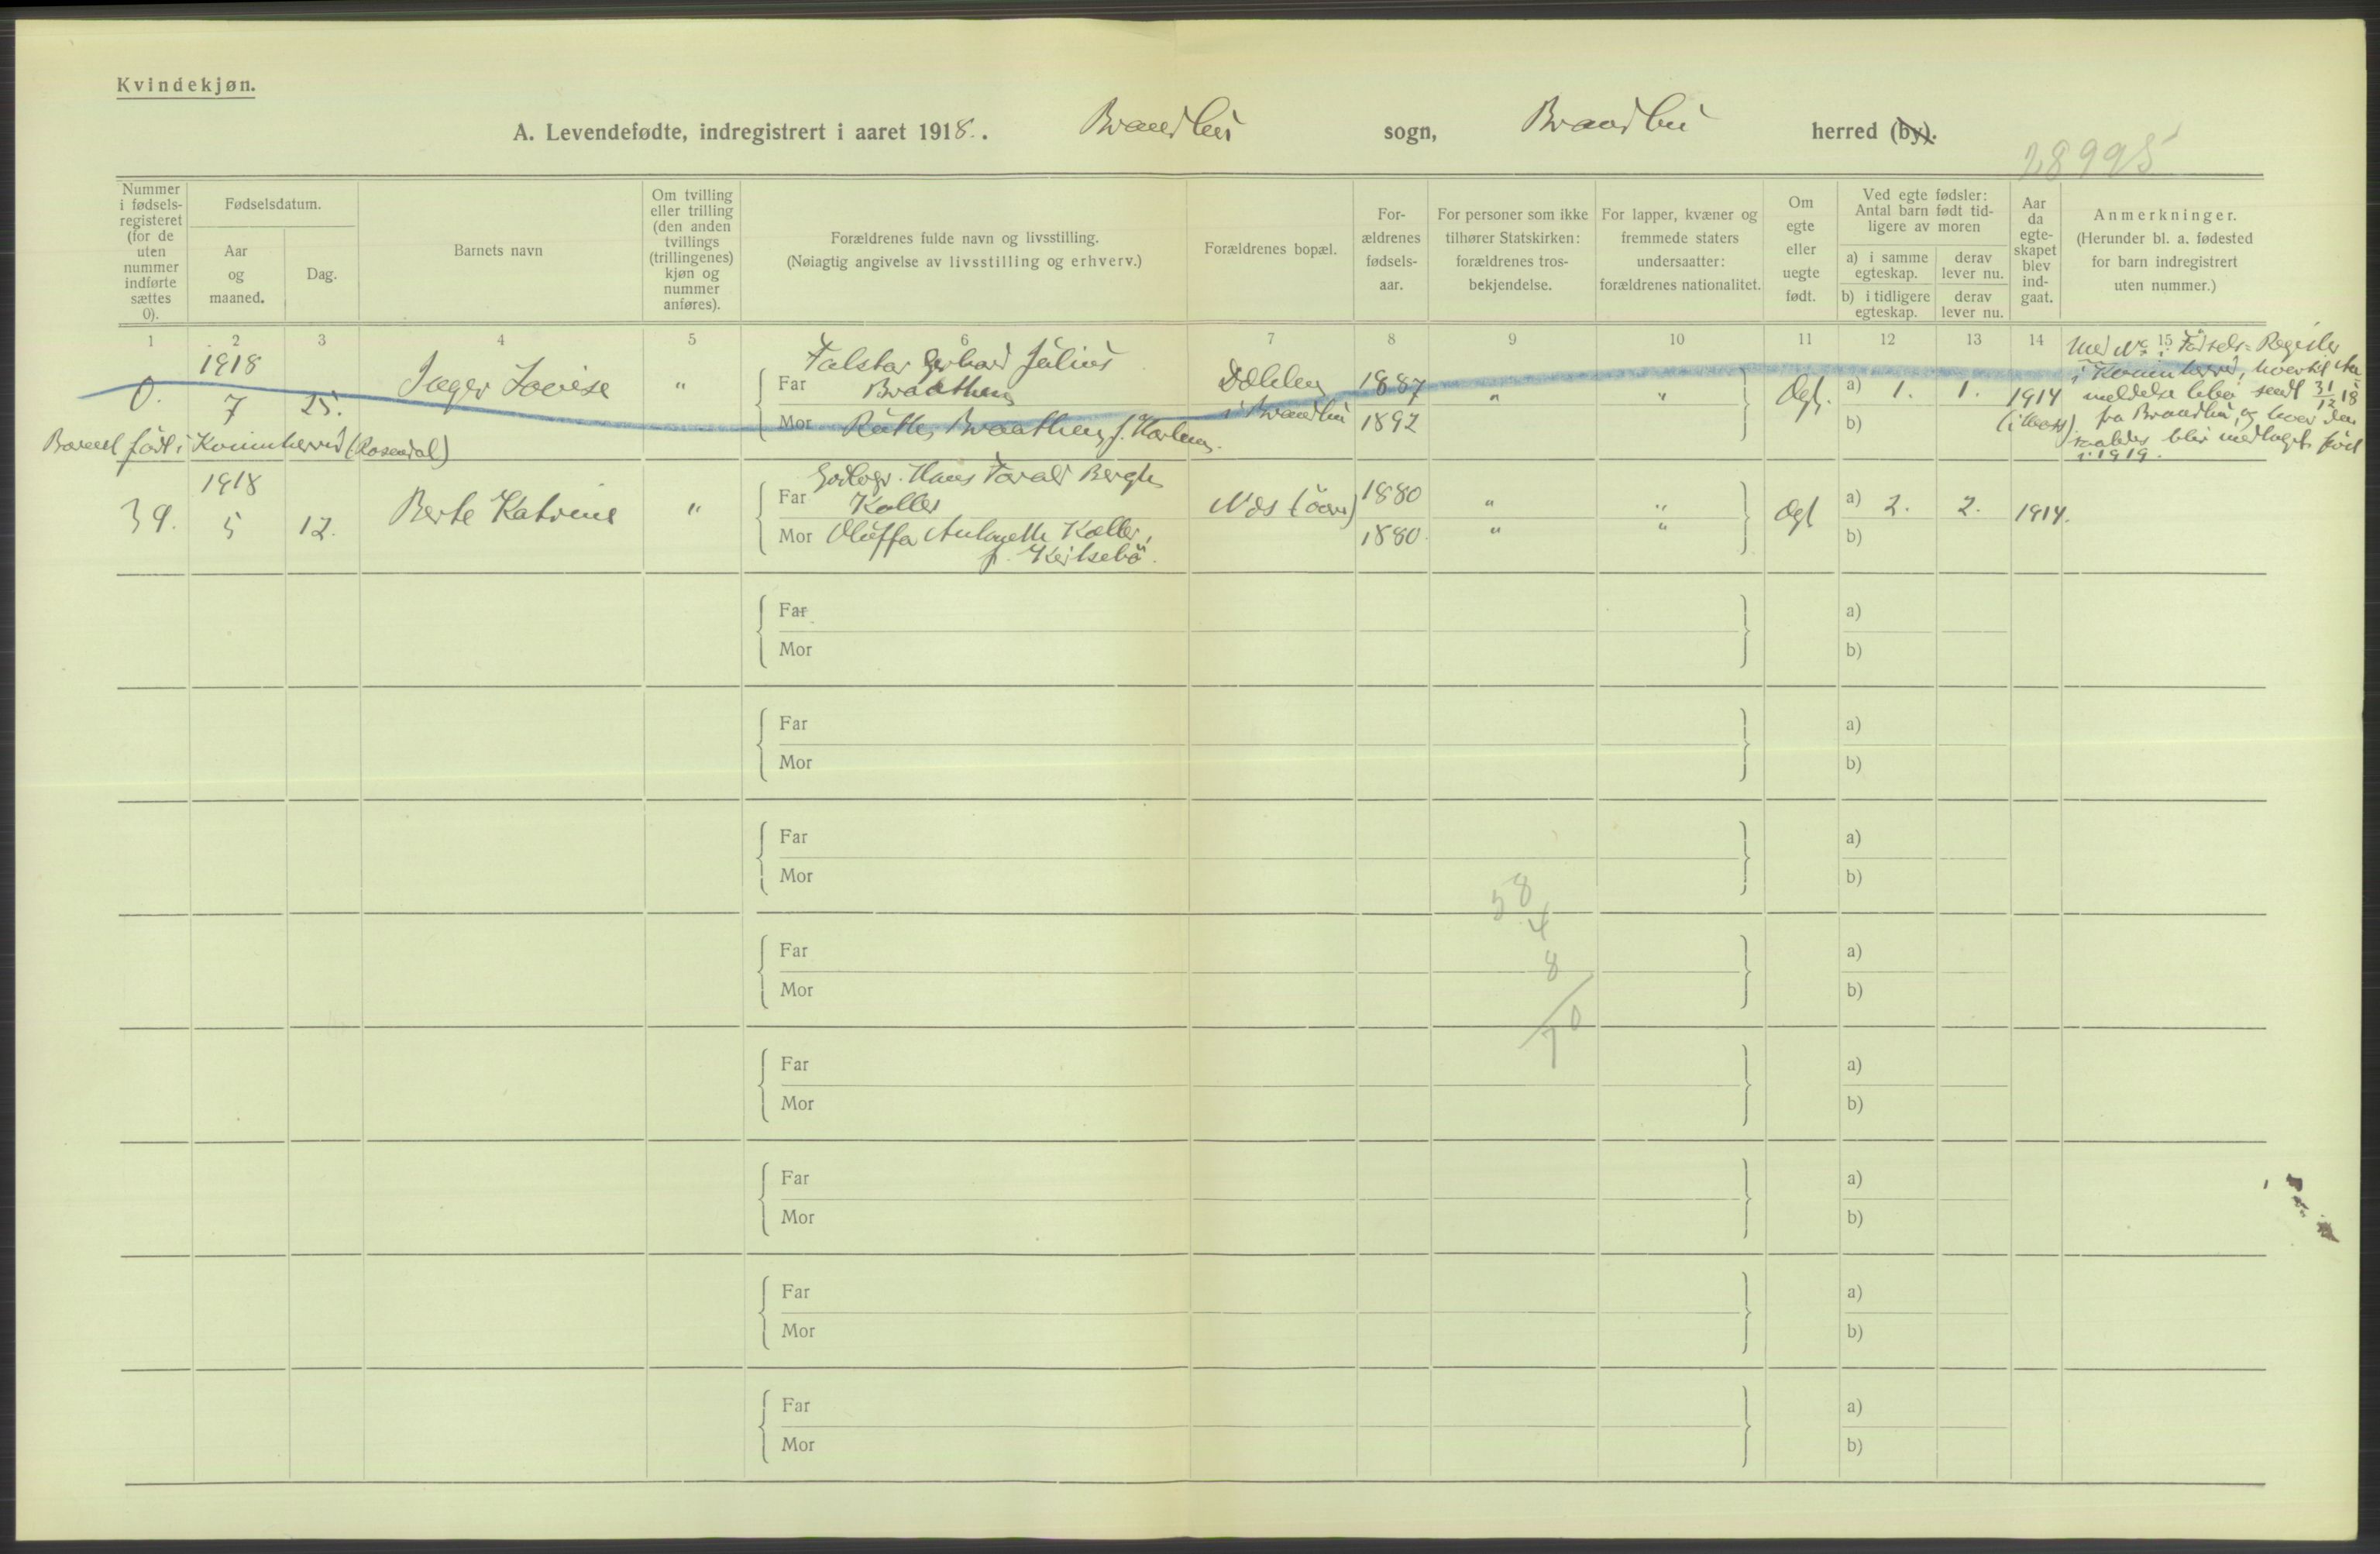 Kvindekjøn.
A. Levendefødte, indregistrert i aaret 1918. Brandbu sogn, Brandbu herred (by).
28995
Nummer i fødsels-registeret (for de uten nummer indførte sættes 0).
Fødselsdatum.
Aar og maaned.
Dag.
Barnets navn
Om tvilling eller trilling (den anden tvillings (trillingenes) kjøn og nummer anføres).
Forældrenes fulde navn og livsstilling.
(Nøiagtig angivelse av livsstilling og erhverv.)
Forældrenes bopæl.
For-ældrenes fødsels-aar.
For personer som ikke tilhører Statskirken: forældrenes tros-bekjendelse.
For lapper, kvæner og fremmede staters undersaatter: forældrenes nationalitet.
Om egte eller uegte født.
Ved egte fødsler: Antal barn født tid-ligere av moren
a) i samme egteskap.
derav lever nu.
b) i tidligere egteskap.
derav lever nu.
Aar da egte-skapet blev ind-gaat.
Anmerkninger.
(Herunder bl. a. fødested for barn indregistrert uten nummer.)
1 2 3 4 5 6 7 8 9 10 11 12 13 14 15
0. 1918 7 25. Inger Lovise "
Far Gerhard Julius Braathen
Mor Ruth Braathen, f.
i Brandbu
1887 " "
1892
Egt. a) 1. 1. 1914
b)
Med No i Fødsels-Register
i Kvinnherred, hvortil
meldelse blev sendt 31/12 18
fra Brandbu, og hvor den
blir medtaget født
i 1919.
Barnet født i Kvinnherred (Rosendal)
39. 1918 5 12. Berte Katrine "
Far Hans Harald Berg
Koller
Mor Oluffa Antonette Koller,
f.
Næs
1880 " "
1880 " "
Egt a) 2. 2. 1914.
b)
Far a)
Mor b)
Far a)
Mor b)
Far a)
Mor b)
58
4
8
70
Far a)
Mor b)
Far a)
Mor b)
Far a)
Mor b)
Far a)
Mor b)
Far a)
Mor b)